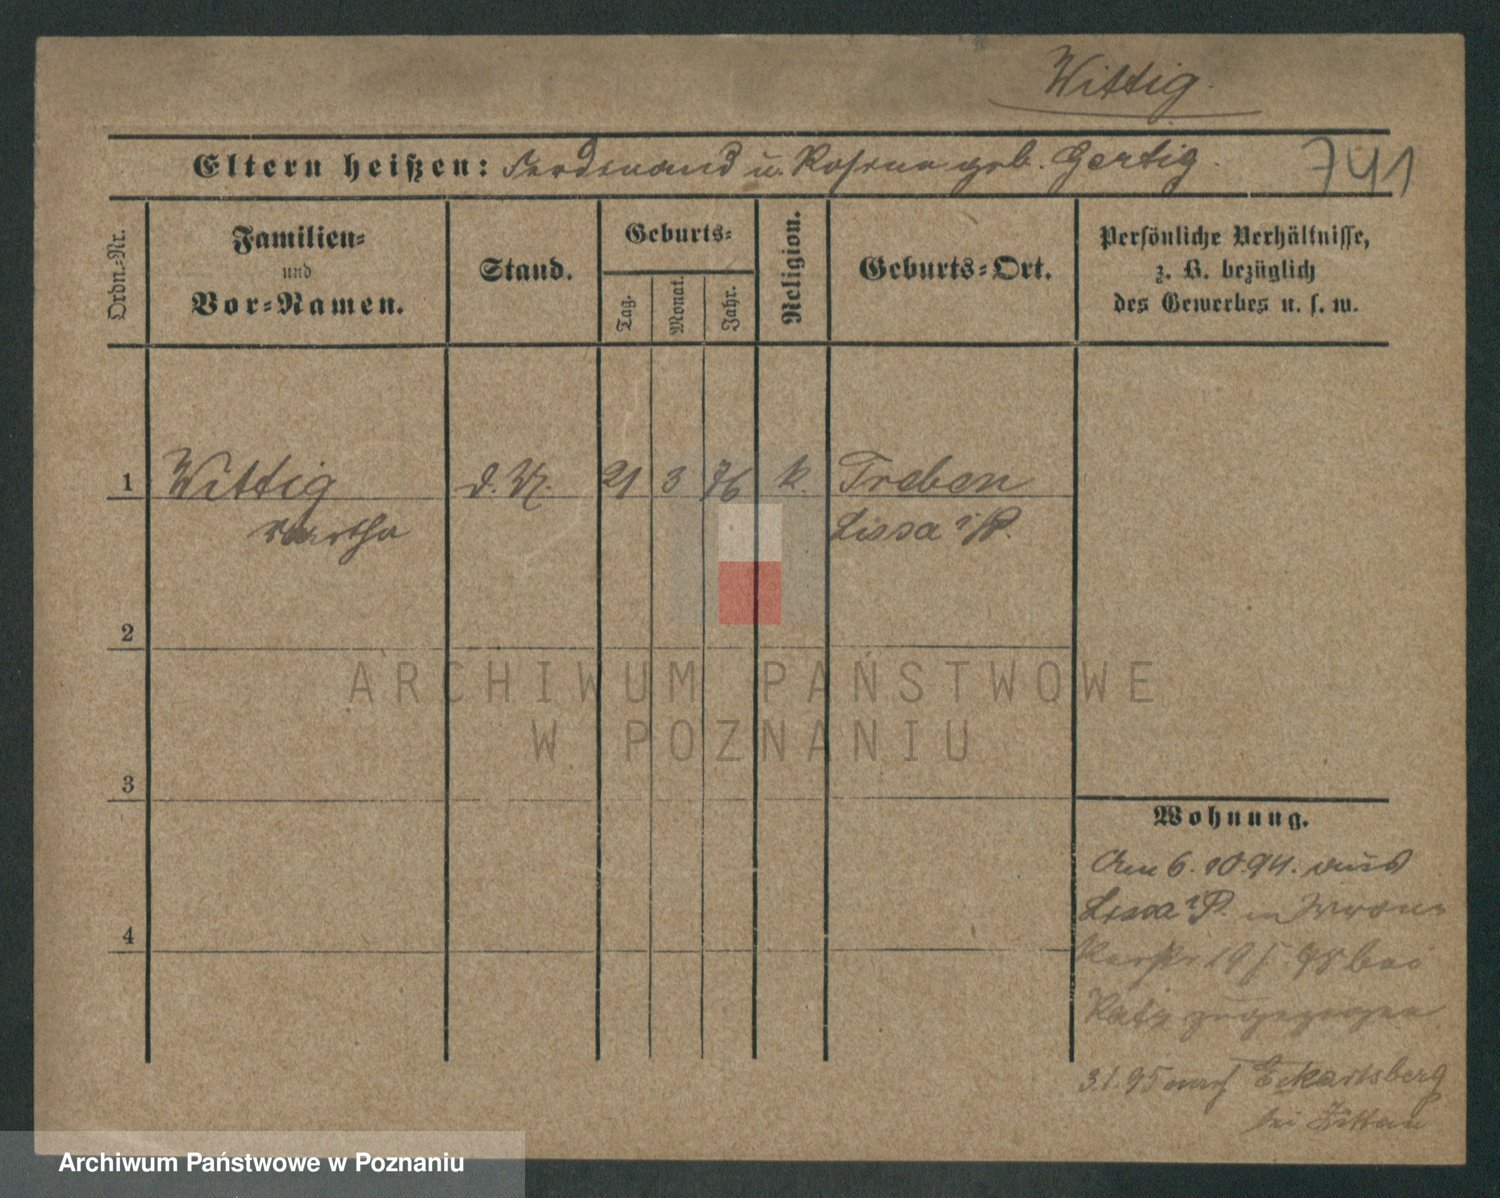 Wittig.
Eltern heißen: Ferdinand u. Rosina geb. Gertig.
741
Ordn.-Nr.
Familien- und Vor-Namen.
Stand.
Geburts-
Tag.
Monat.
Jahr.
Religion.
Geburts-Ort.
Persönliche Verhältnisse,
z. B. bezüglich
des Gewerbes u. s. w.
1 Wittig d. M. 21 3 76 k. Treben
Martha Lissa i/P.
2
3
4
Wohnung.
Am 6. 10.94. aus
Lissa i/P. in
19 bei
Katz zugezogen
3.1.95 nach Eckartsberg
bei Zittau
ARCHIWUM PAŃSTWOWE
W POZNANIU
Archiwum Państwowe w Poznaniu